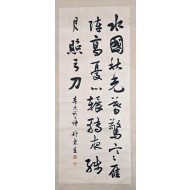 水國秋光暮驚寒雁
陣高憂心輾轉夜殘
月照弓刀